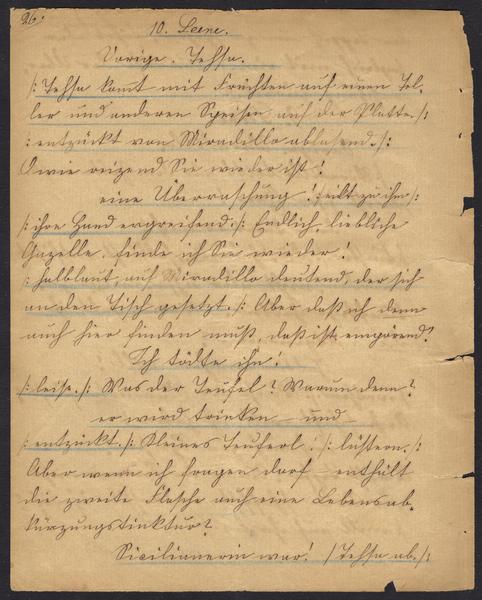 26.
10. Scene.
Vorige. Tessa.
/: Tessa kommt mit Früchten auf einem Tel-
ler und anderen Speisen auf der Platte. /:
: entzückt von Miradillo ablassend. /:
O wie reizend Sie wieder ist!
eine Überraschung! /eilt zu ihm /:
/: ihre Hand ergreifend: /: Endlich, liebliche
Gazelle, finde ich Sie wieder!
: halblaut, auf Miradillo deutend, der sich
an den Tisch gesetzt. /: Aber daß ich den
auch hier finden muß, das ist empörend!
Ich tödte ihn!
/: leise. /: Was der Teufel? Warum denn?
er wird trinken – und
: entzückt. /: Kleines Teuferl! /: lüstern. /:
Aber wenn ich fragen darf – enthält
die zweite Flasche auch eine Lebensab-
kürzungstinktur?
Sicilianerin war! /Tessa ab. /: